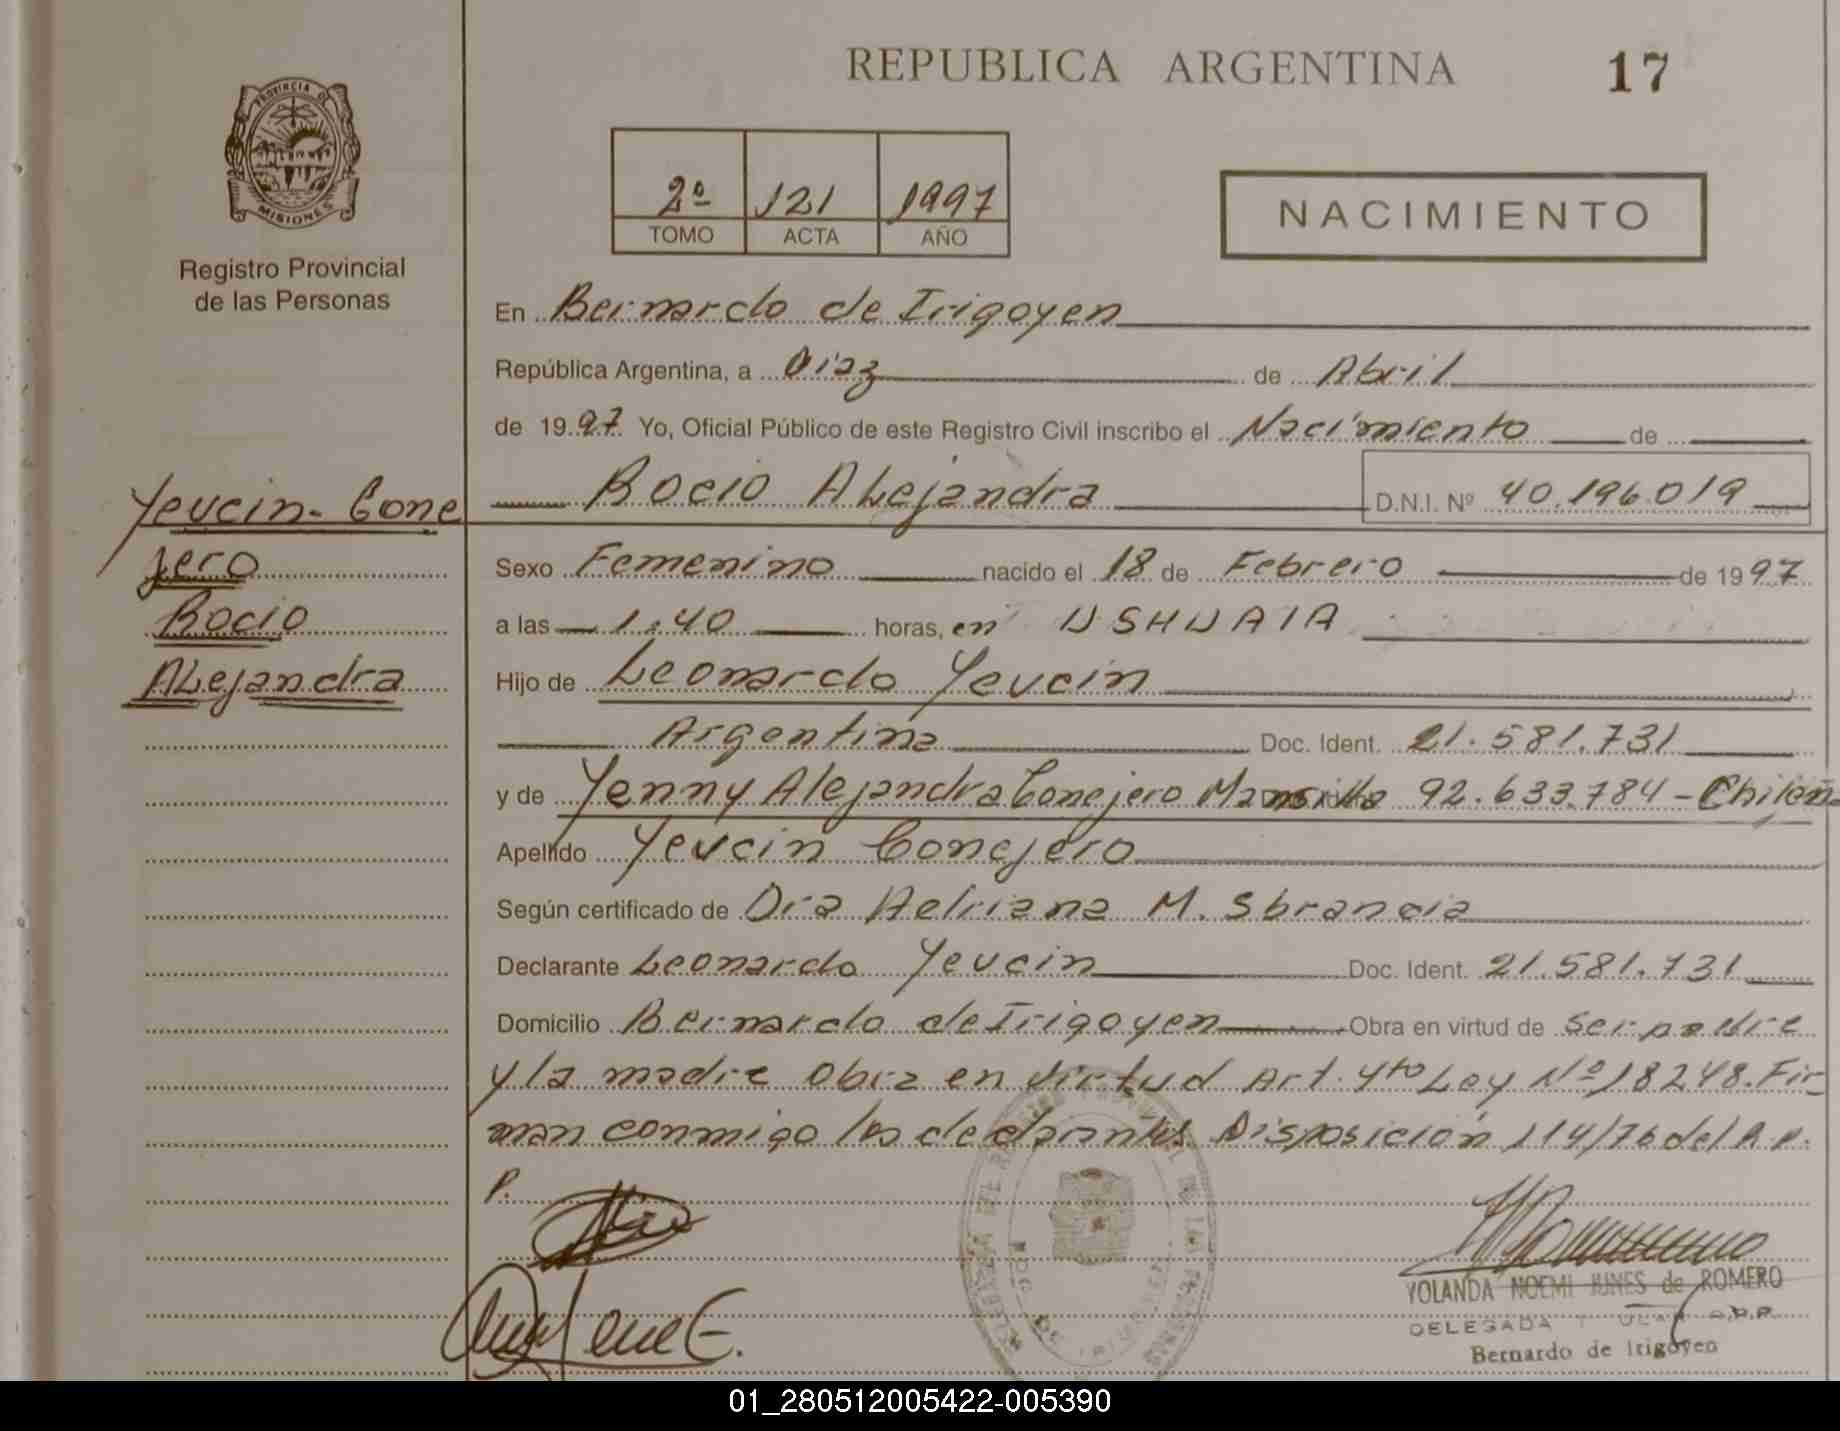 REPUBLICA ARGENTINA 17
PROVINCIA DE
MISIONES
Registro Provincial
de las Personas
2º 121 1997
TOMO ACTA AÑO
NACIMIENTO
En Bernardo de Irigoyen
República Argentina, a Diaz de Abril
de 1997 Yo, Oficial Público de este Registro Civil inscribo el Nacimiento de
Rocio Alejandra D.N.I. Nº 40.196.019
Yeucin-Cone
jero
Rocio
Alejandra
Sexo Femenino nacido el 18 de Febrero de 1997
a las 1.40 horas, en USHUAIA
Hijo de Leonardo Yeucin
Argentina Doc. Ident. 21.581.731
y de Yenny Alejandra Conejero Mansilla 92.633.784-Chilena
Apellido Yeucin Conejero
Según certificado de Dra Adriana M. Sbrancia
Declarante Leonardo Yeucin Doc. Ident. 21.581.731
Domicilio Bernardo de Irigoyen Obra en virtud de ser padre
y la madre obra en virtud Art. 4to Ley Nº 18248. Fir-
man conmigo los declarantes. Disposición 114/76 del R.P.
P.
YOLANDA NOEMI JUNES de ROMERO
DELEGADA
Bernardo de Irigoyen
01_280512005422-005390